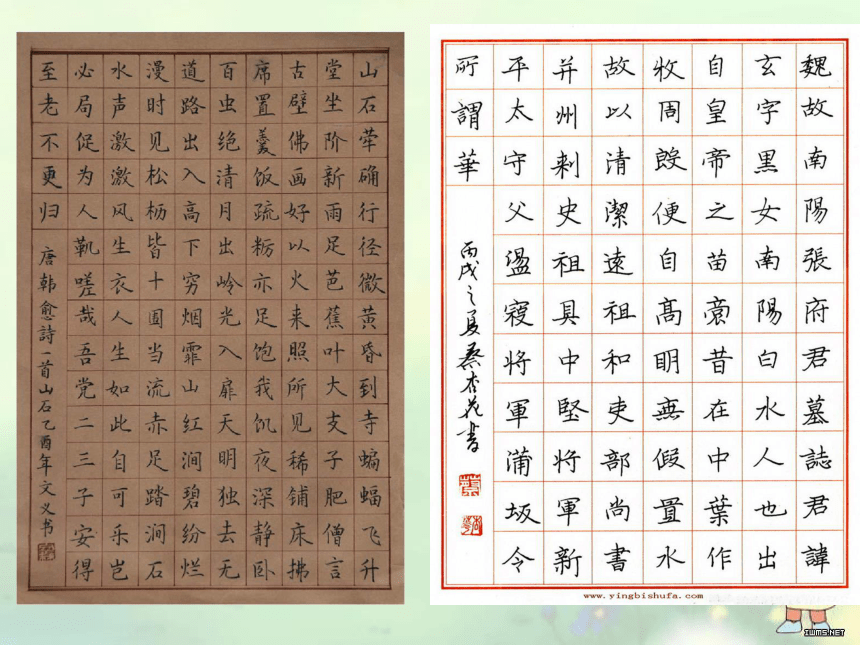 山石荦确行径微黄昏到寺蝙蝠飞升
堂坐阶新雨足芭蕉叶大支子肥僧言
古壁佛画好以火来照所见稀铺床拂
席置羹饭疏粝亦足饱我饥夜深静卧
百虫绝清月出岭光入扉天明独去无
道路出入高下穷烟霏山红涧碧纷烂
漫时见松枥皆十围当流赤足踏涧石
水声激激风生衣人生如此自可乐岂
必局促为人鞿嗟哉吾党二三子安得
至老不更归
唐韩愈詩一首山石乙酉年文义书
魏故南陽張府君墓誌君諱
玄字黑女南陽白水人也出
自皇帝之苗裔昔在中葉作
牧周殷便自高明無假置水
故以清潔遠祖和吏部尚書
并州刾史祖具中堅将軍新
平太守父盪寇将軍蒲坂令
所謂華
丙戌之夏蔡杏花書
www.yingbishufa.com
IWMS.NET